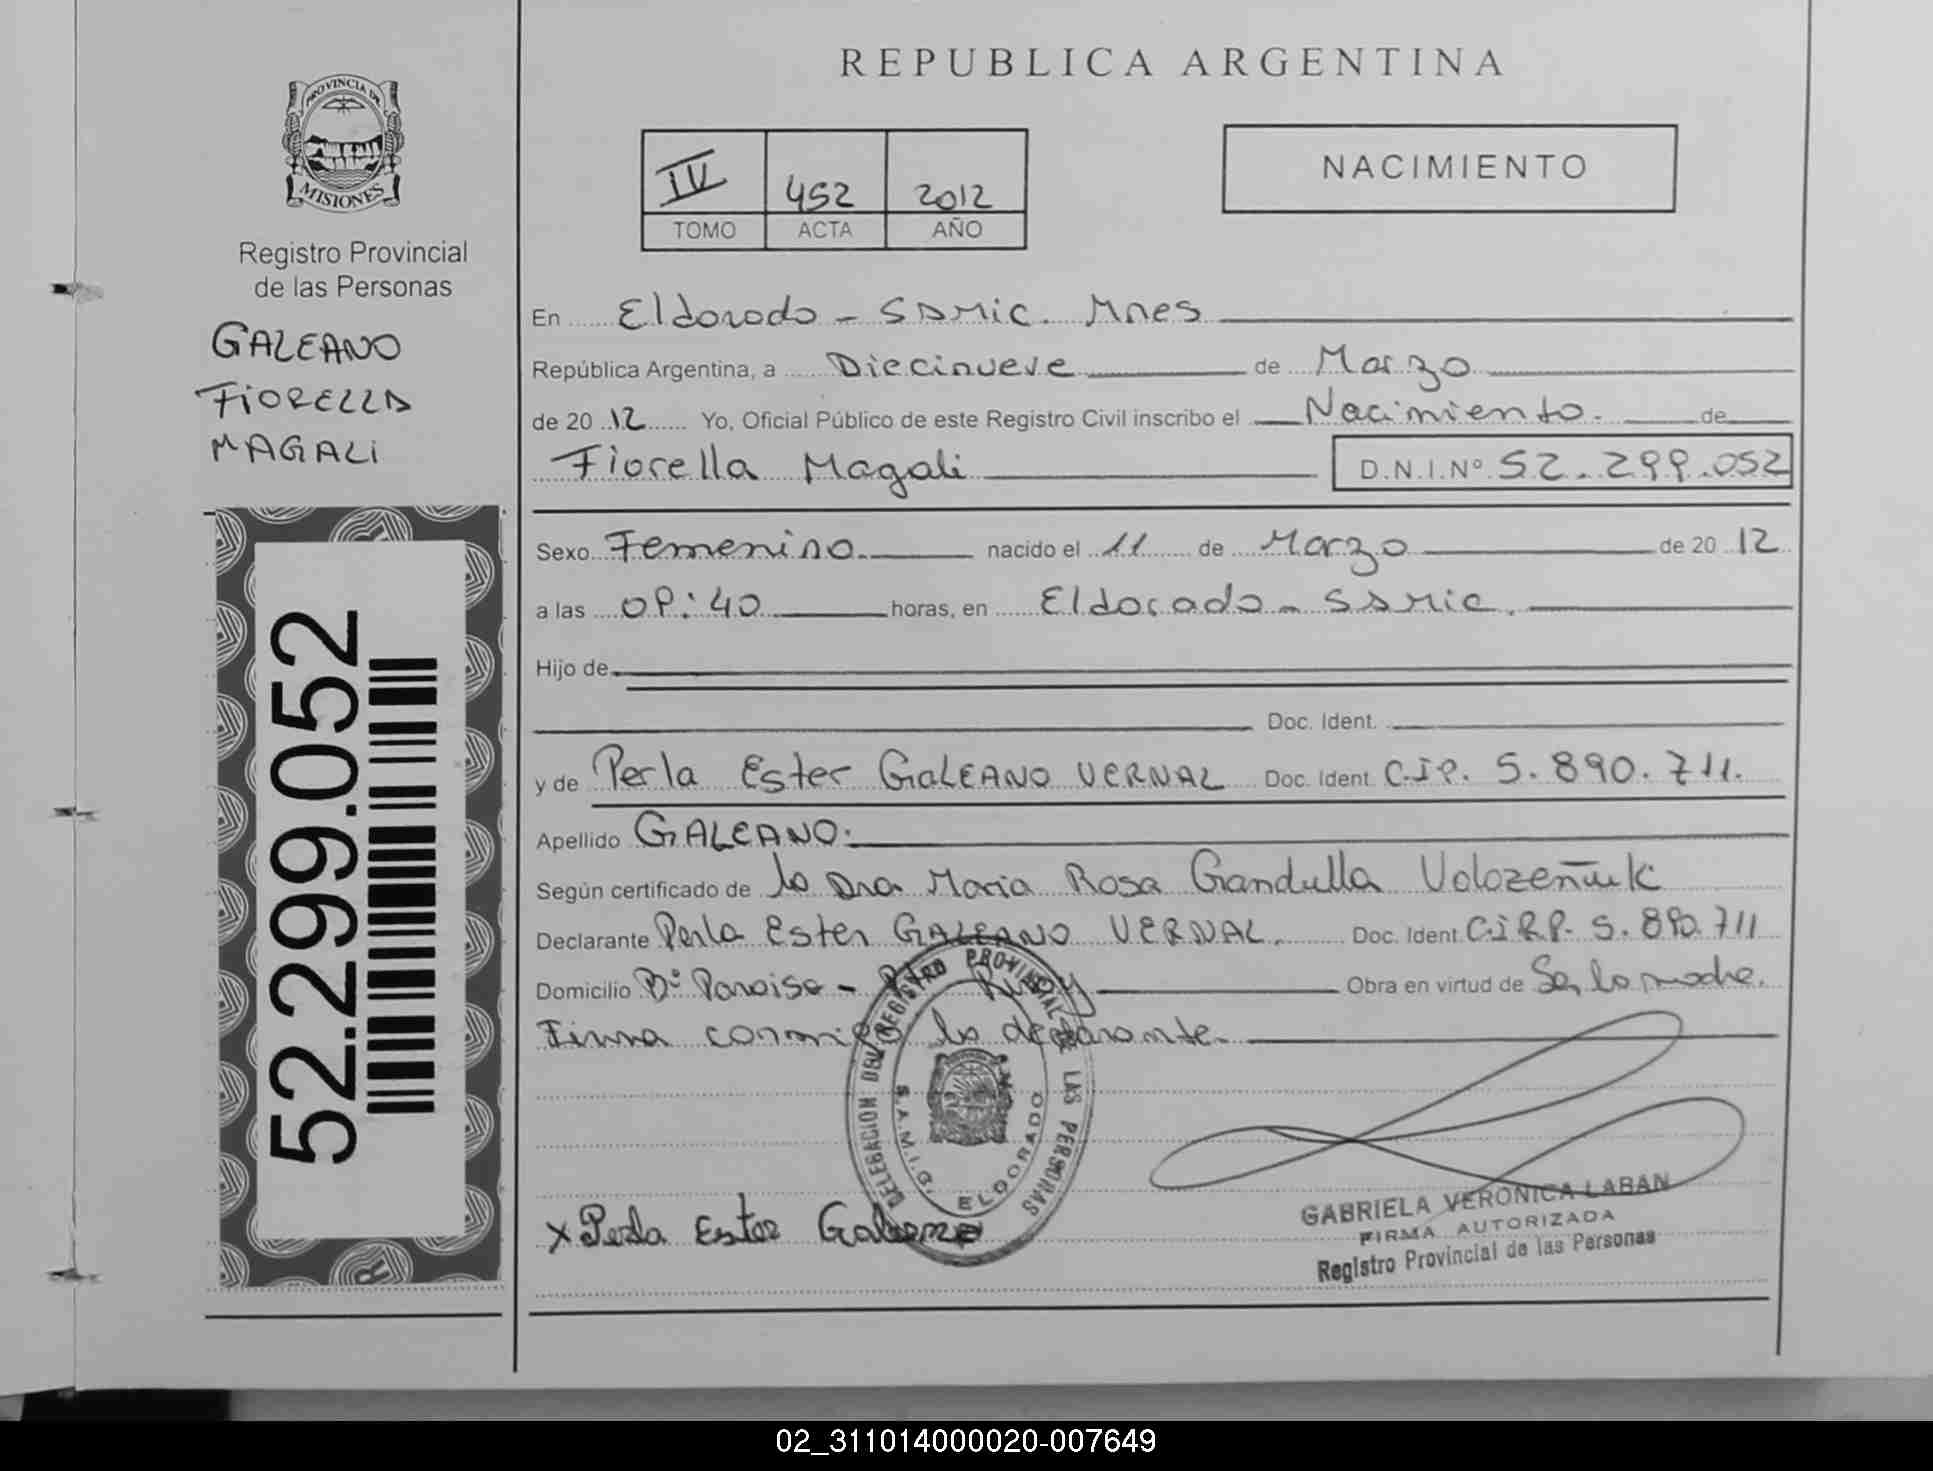 PROVINCIA DE
MISIONES
Registro Provincial
de las Personas
GALEANO
FIORELLA
MAGALI
52.299.052
REPUBLICA ARGENTINA
IV 452 2012
TOMO ACTA AÑO
NACIMIENTO
En Eldorado - SAMIC. Mnes
República Argentina, a Diecinueve de Marzo
de 20 12 Yo, Oficial Público de este Registro Civil inscribo el Nacimiento. de
Fiorella Magali D.N.I.Nº 52.299.052
Sexo Femenino. nacido el 11 de Marzo de 20 12
a las 09:40 horas, en Eldorado - SAMIC.
Hijo de
Doc. Ident.
y de Perla Ester GALEANO VERNAL Doc. Ident. C.I.P. 5.890.711.
Apellido GALEANO.
Según certificado de la Dra Maria Rosa Gandulla
Declarante Perla Ester GALEANO VERNAL. Doc. Ident. C.I.R.P. 5.890.711
Domicilio Bº Paraiso - Obra en virtud de Ser la madre.
Firma la declarante.
DELEGACION DEL REGISTRO PROVINCIAL DE LAS PERSONAS
S.A.M.I.C. ELDORADO
x Perla Ester Galeano
GABRIELA VERONICA LABAN
FIRMA AUTORIZADA
Registro Provincial de las Personas
02_311014000020-007649